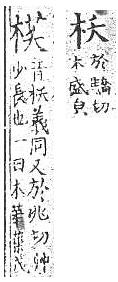 枖
於驕切
木盛皃
音枖義同又於兆切艸
少長也一曰木華葉茂